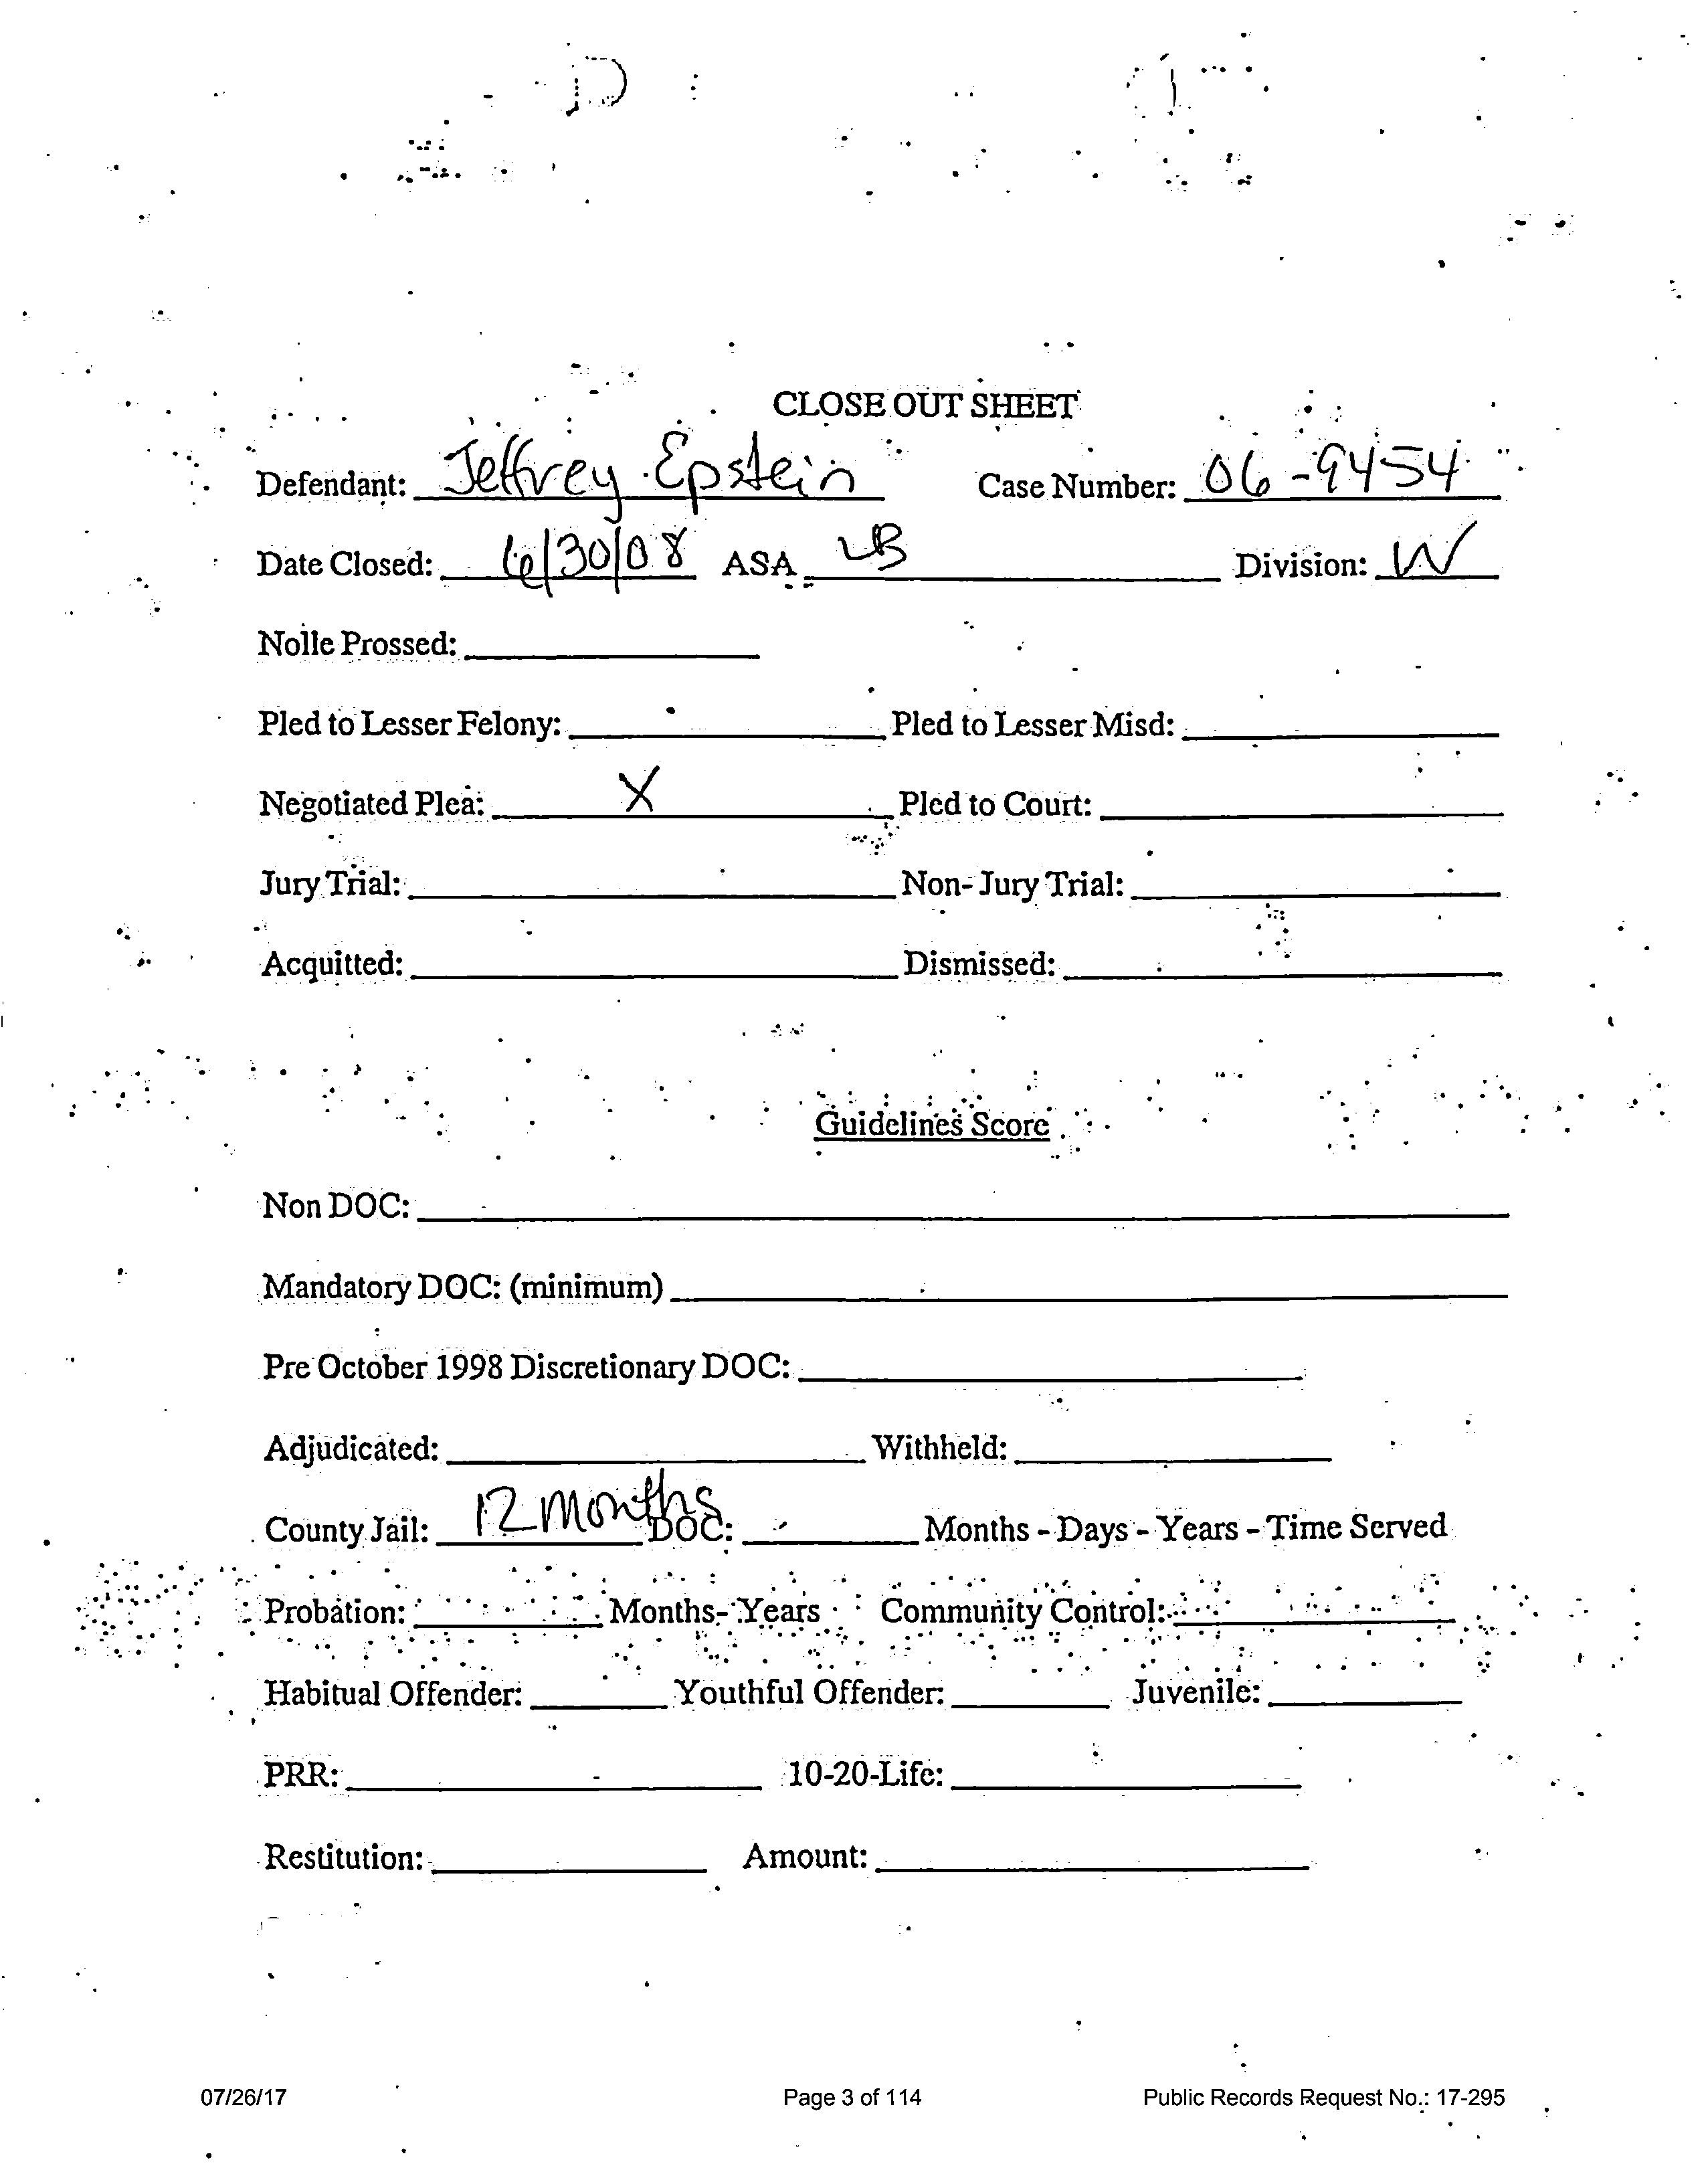 CLOSE OUT SHEET
Defendant: Jeffrey Epstein Case Number: 06-9454
Date Closed: 6/30/08 ASA LB Division: W
Nolle Prossed:
Pled to Lesser Felony: Pled to Lesser Misd:
Negotiated Plea: X Pled to Court:
Jury Trial: Non-Jury Trial:
Acquitted: Dismissed:
Guidelines Score
Non DOC:
Mandatory DOC: (minimum)
Pre October 1998 Discretionary DOC:
Adjudicated: Withheld:
County Jail: 12 Months DOC: Months - Days - Years - Time Served
Probation: Months- Years Community Control:
Habitual Offender: Youthful Offender: Juvenile:
PRR: 10-20-Life:
Restitution: Amount:
07/26/17 Page 3 of 114 Public Records Request No.: 17-295